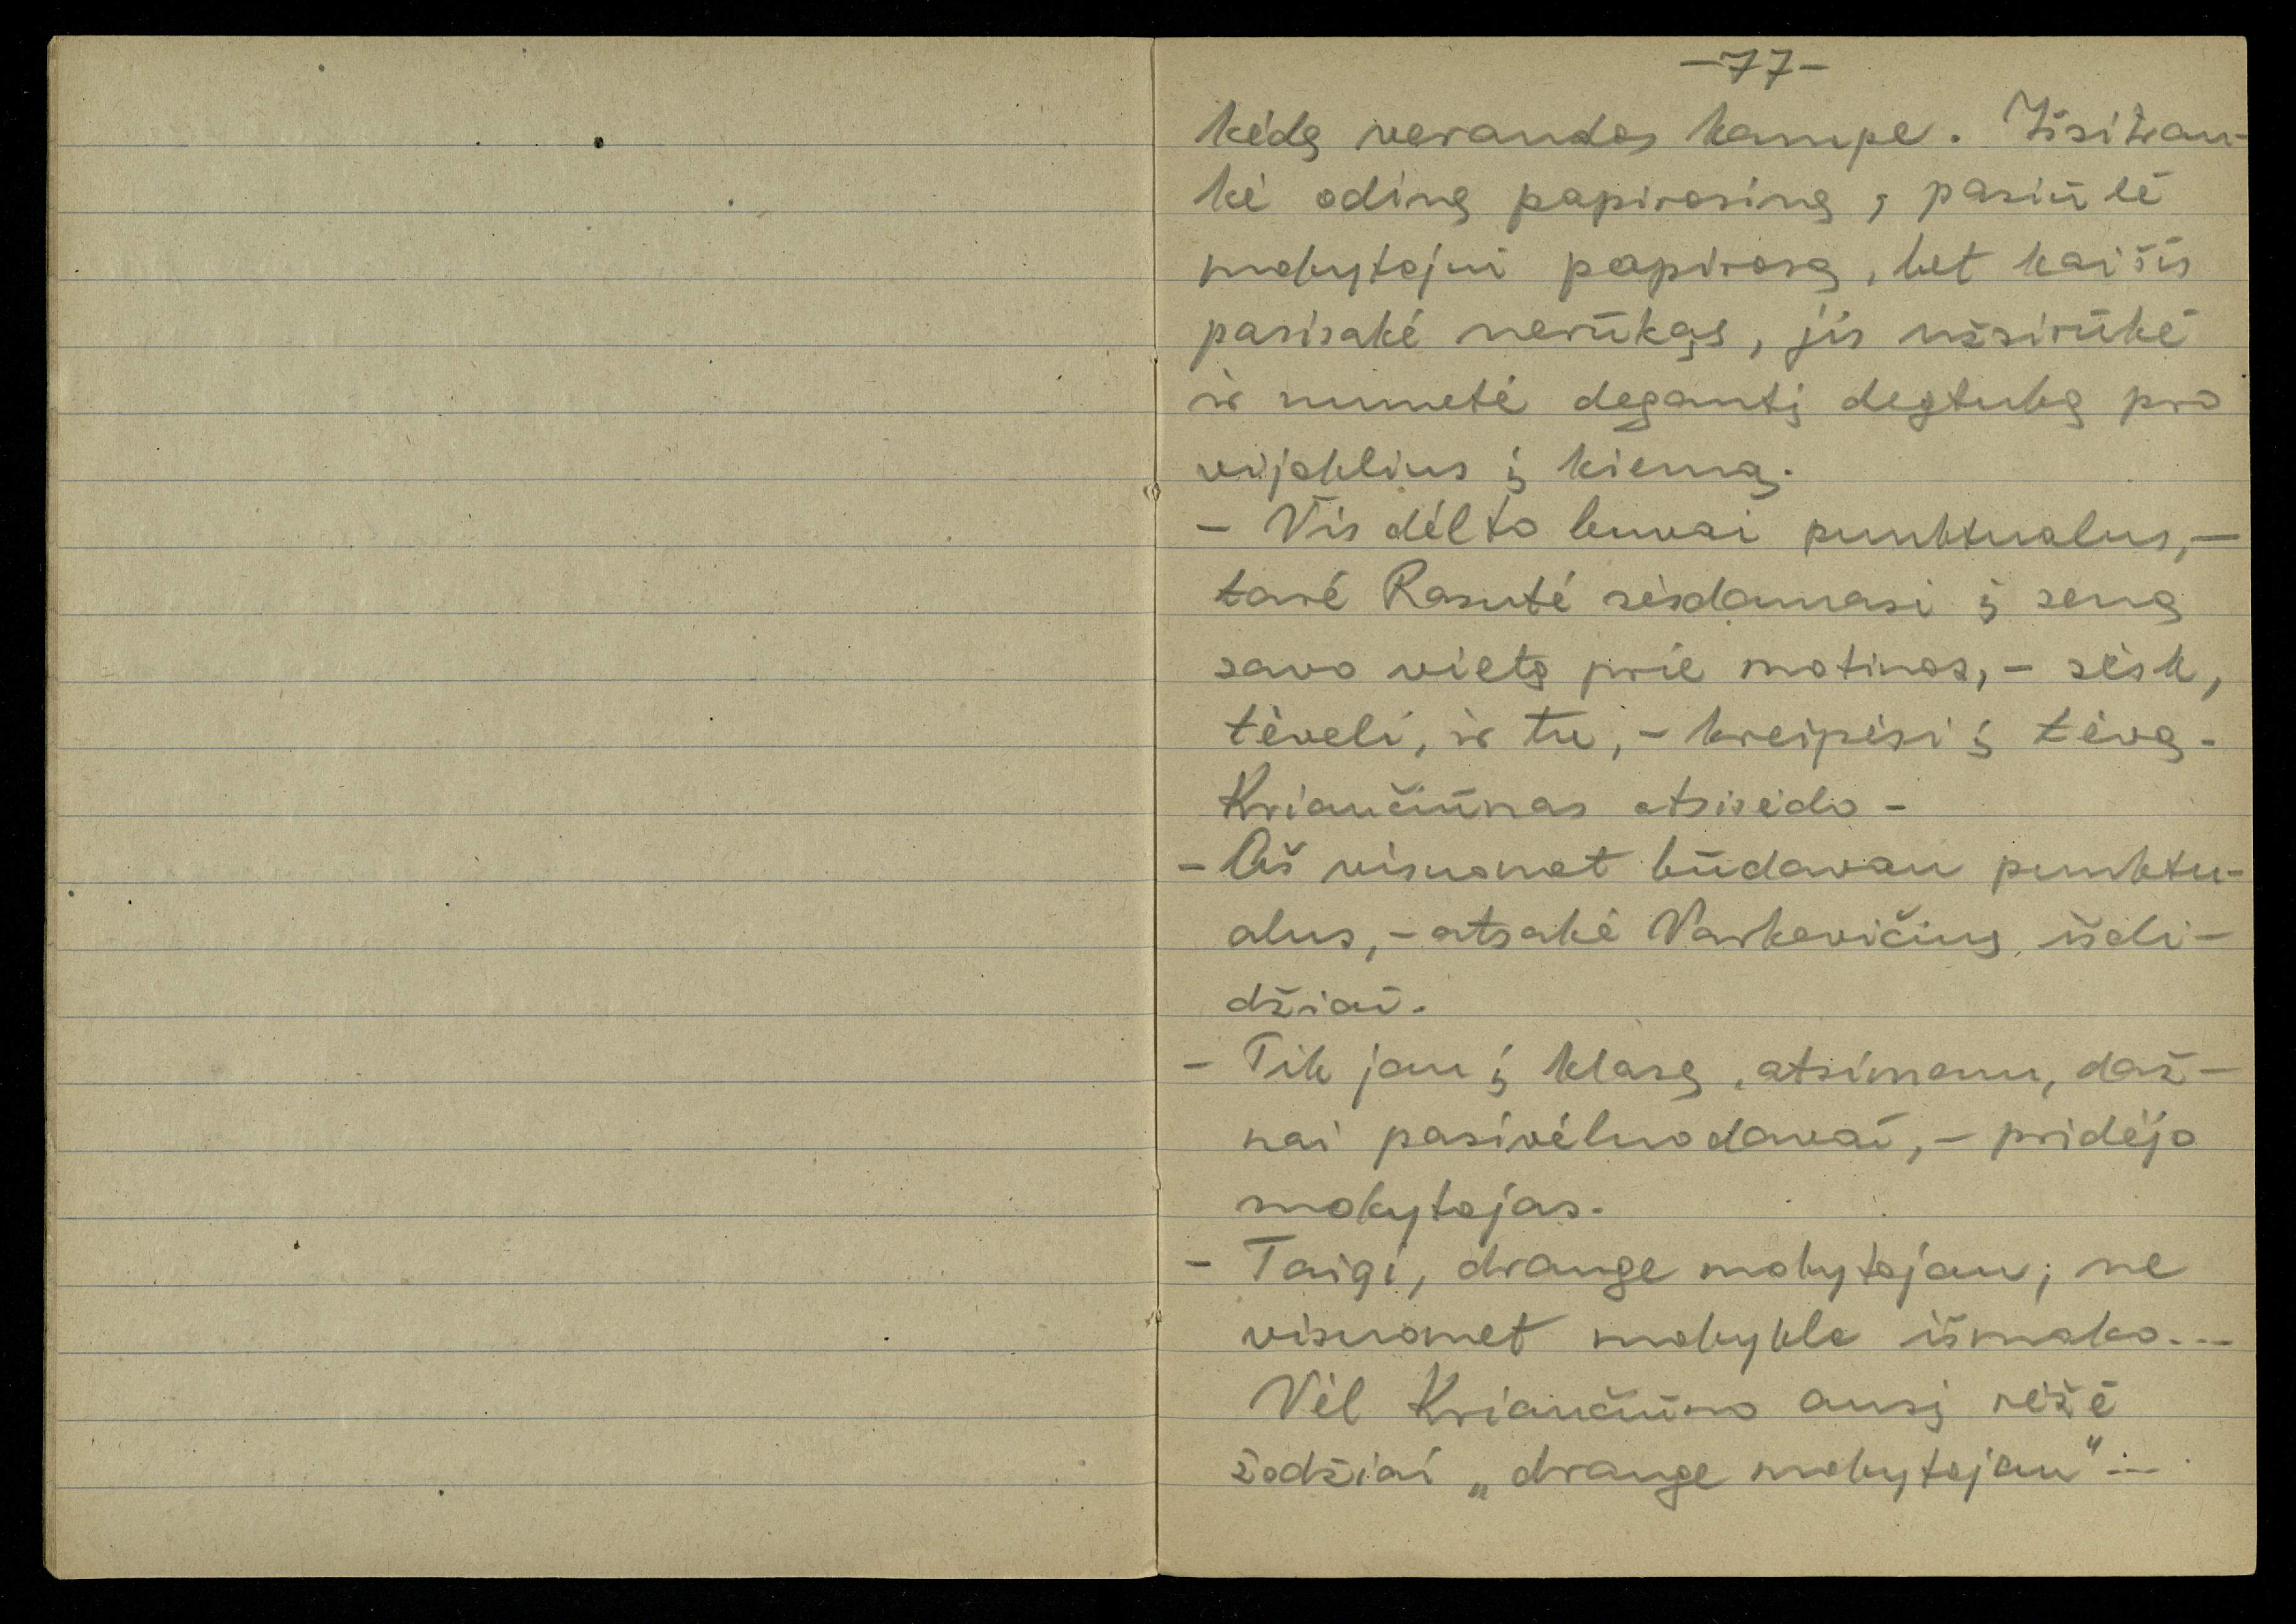 -77-
kėdę verandos kampe. Išsitrau-
kė odinę papirosinę, pasiūlė
mokytojui papirosą, bet kai šis
pasisakė nerūkąs, jis užsirūkė
ir numetė degantį degtuką pro
vijoklius į kiemą.
- Vis dėlto buvai punktualus,-
tarė Rasutė sėsdamasi į seną
savo vietą prie motinos,- sėsk,
tėveli, ir tu,- kreipėsi į tėvą.
Kriaučiūnas atsisėdo -
- Aš visuomet būdavau punktu-
alus,- atsakė Varkevičius išdi-
džiai.
- Tik jau į klasę, atsimenu, daž-
nai pasivėluodavai,- pridėjo
mokytojas.
- Taigi, drauge mokytojau, ne
visuomet mokykla išmoko...
Vėl Kriaučiūno ausį rėžė
žodžiai „drauge mokytojau"...